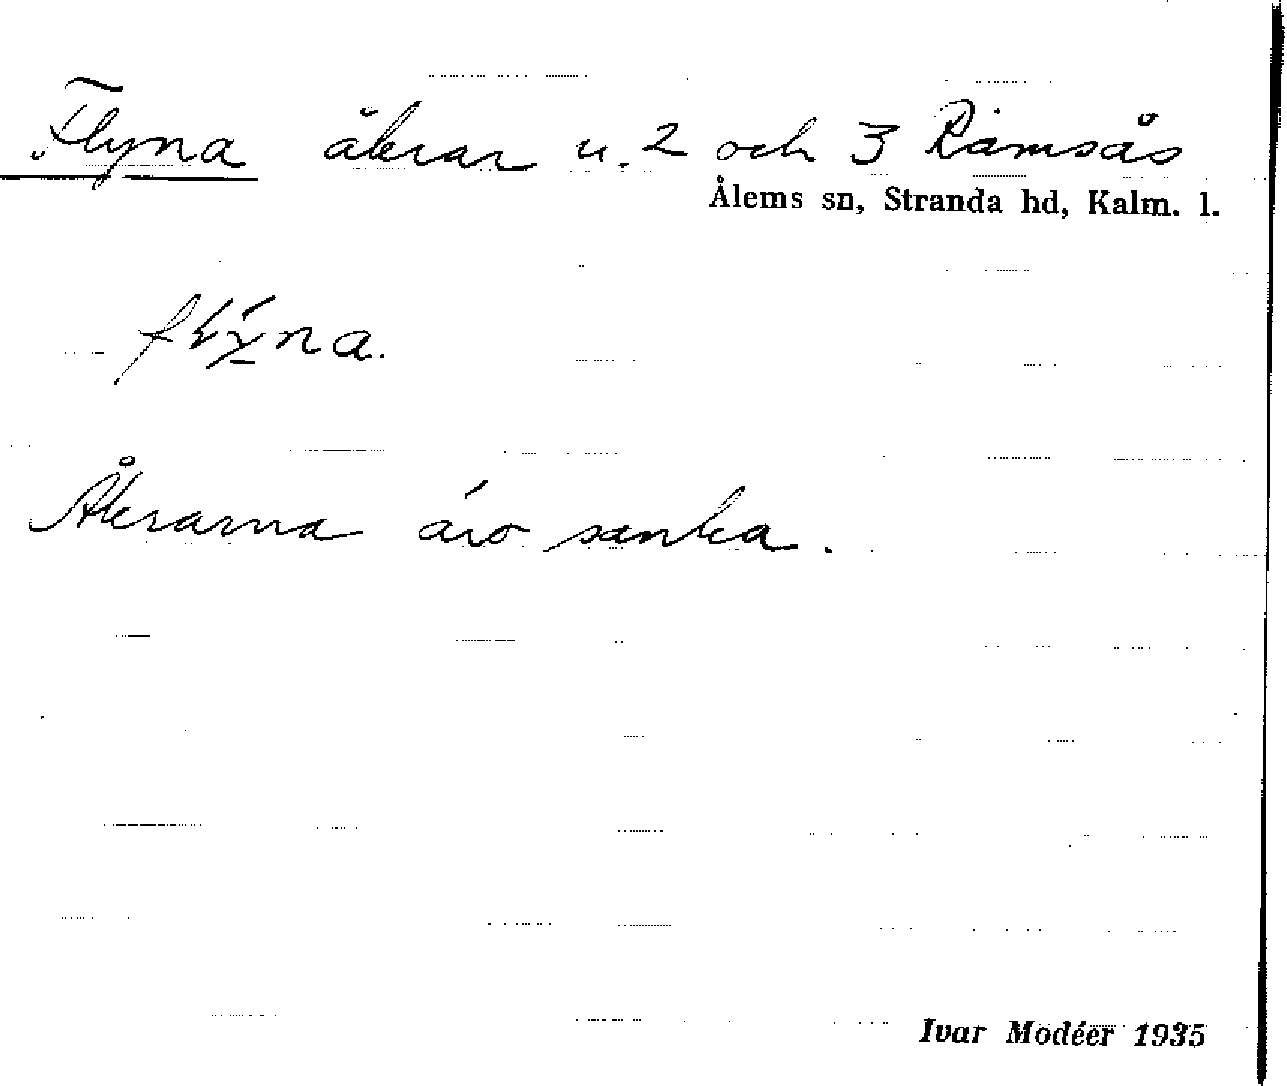 Flyna åkrar u. 2 och 3 Ramsås
Ålems sn, Stranda hd, Kalm. l.
flýna.
Åkrarna äro sanka.
Ivar Modéer 1935